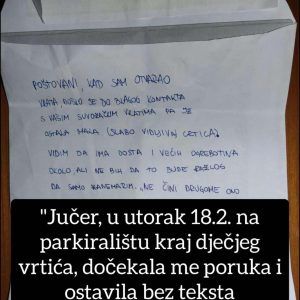 POŠTOVANI, KAD SAM OTVARAO
VRATA DOŠLO JE DO BLAGOG KONTAKTA
S VAŠIM SUVOZAČKIM VRATIMA PA JE
OSTALA MALA (SLABO VIDLJIVA CRTICA)
VIDIM DA IMA DOSTA I VEĆIH OGREBOTINA
OKOLO, ALI NE BIH DA TO BUDE RAZLOG
DA SAMO ZANEMARIM. „NE ČINI DRUGOME ONO
"Jučer, u utorak 18.2. na
parkiralištu kraj dječjeg
vrtića, dočekala me poruka i
ostavila bez teksta